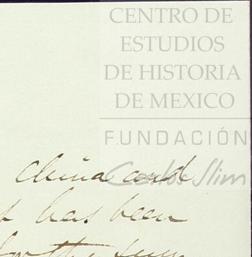 CENTRO DE
ESTUDIOS
DE HISTORIA
DE MEXICO
FUNDACIÓN
Carlos Slim
china and
has been